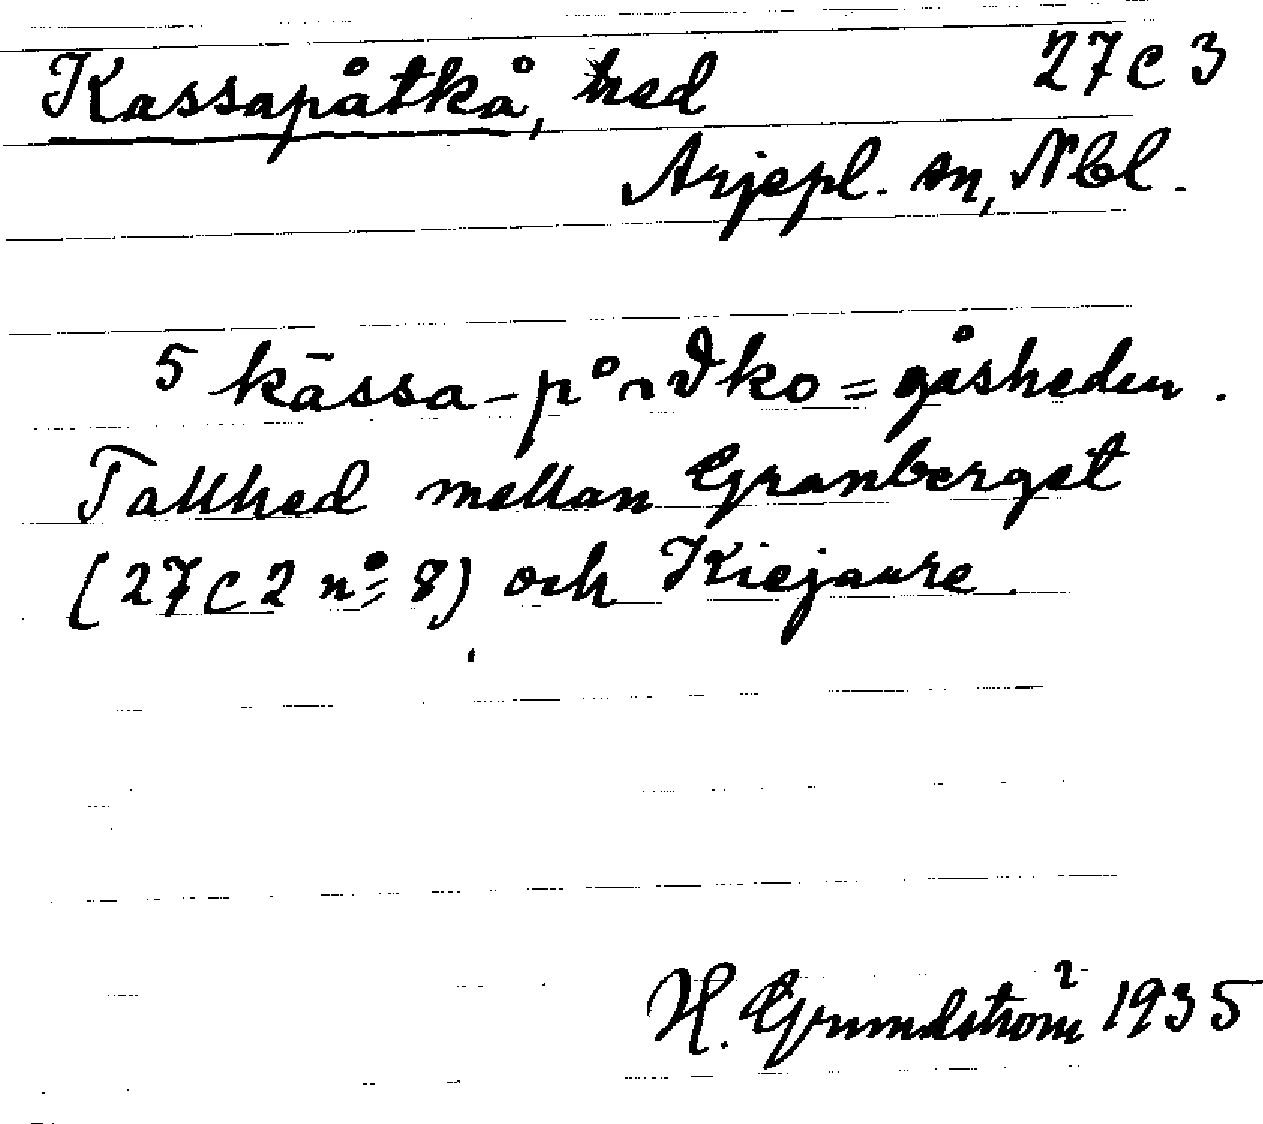 Kassapåtkå, hed 27 C 3
Arjepl. sn, Nbl.
5 kāssa-p
= gåsheden.
Tallhed mellan Granberget
(27 C 2 nº 8) och Kiejaure.
H. Grundström 1935